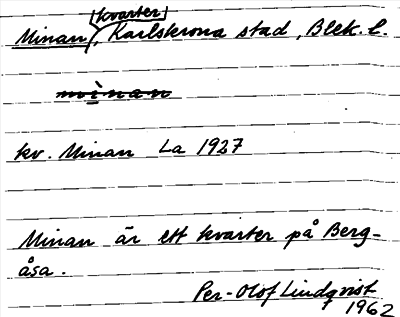 Minan, |kvarter| Karlskrona stad, Blek. l.
minan
kv. Minan La 1927
Minan är ett kvarter på Berg-
åsa.
Per-Olof Lindqvist
1962